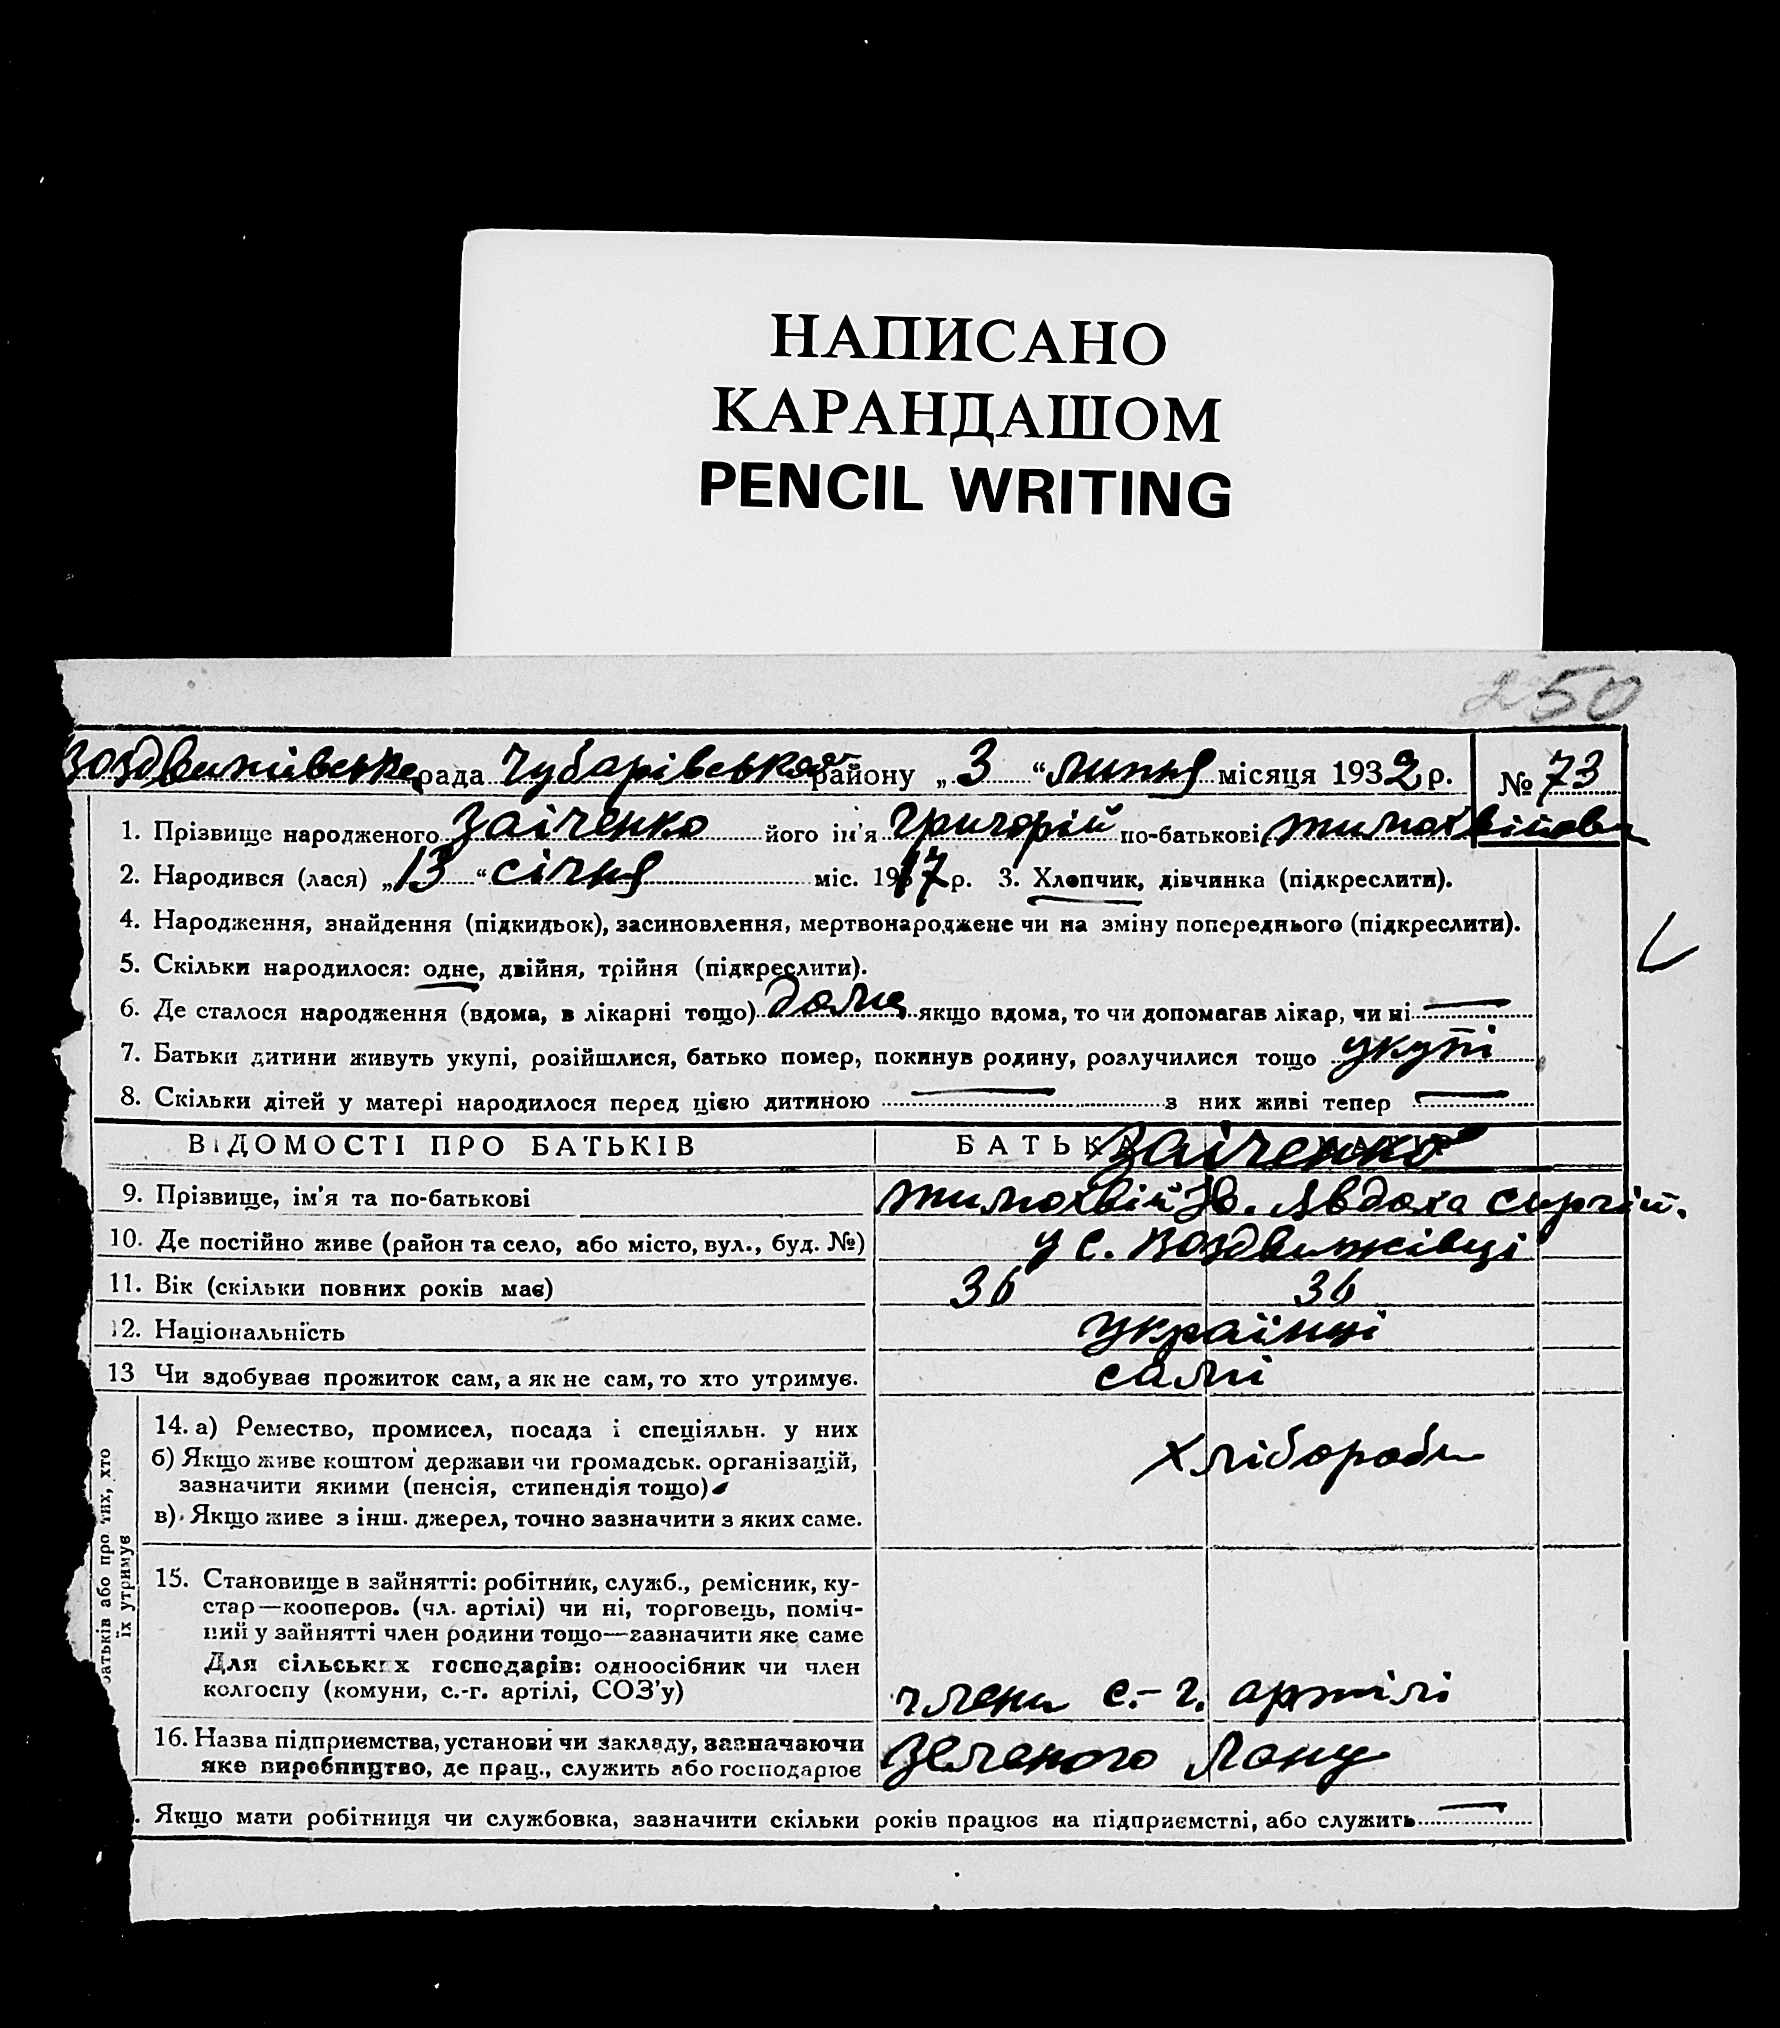 НАПИСАНО
КАРАНДАШОМ
PENCIL WRITING
250
Воздвижівська рада Чубарівського району „ 3 “ липня місяця 1932 р. № 73
1. Прізвище народженого Заіченко його ім’я Григорій по-батькові Тимохвійов
2. Народився (лася) „ 13 “ січня міс. 1917 р. 3. Хлопчик, дівчинка (підкреслити).
4. Народження, знайдення (підкидьок), засиновлення, мертвонароджене чи на зміну попереднього (підкреслити).
5. Скільки народилося: одне, двійня, трійня (підкреслити).
6. Де сталося народження (вдома, в лікарні тощо) дома якщо вдома, то чи допомагав лікар, чи ні —
7. Батьки дитини живуть укупі, розійшлися, батько помер, покинув родину, розлучилися тощо укупі
8. Скільки дітей у матері народилося перед цією дитиною — з них живі тепер —
ВІДОМОСТІ ПРО БАТЬКІВ БАТЬКА Заіченко
9. Прізвище, ім’я та по-батькові Тимохвій Авдоха Сиргій.
10. Де постійно живе (район та село, або місто, вул., буд. №) у с. Воздвижівці
11. Вік (скільки повних років має) 36 36
12. Національність українці
13 Чи здобуває прожиток сам, а як не сам, то хто утримує. самі
14. а) Ремество, промисел, посада і спеціяльн. у них
б) Якщо живе коштом держави чи громадськ. організацій, хлібороби
зазначити якими (пенсія, стипендія тощо)
в) Якщо живе з інш. джерел, точно зазначити з яких саме.
батьків або про тих, хто
їх утримує
15. Становище в зайнятті: робітник, служб., ремісник, ку-
стар—кооперов. (чл. артілі) чи ні, торговець, поміч-
ний у зайнятті член родини тощо—зазначити яке саме
Для сільських господарів: одноосібник чи член
колгоспу (комуни, с.-г. артілі, СОЗ’у) члени с.-г. артілі
16. Назва підприємства, установи чи закладу, зазначаючи
яке виробництво, де прац., служить або господарює Зеленого Лану
. Якщо мати робітниця чи службовка, зазначити скільки років працює на підприємстві, або служить —